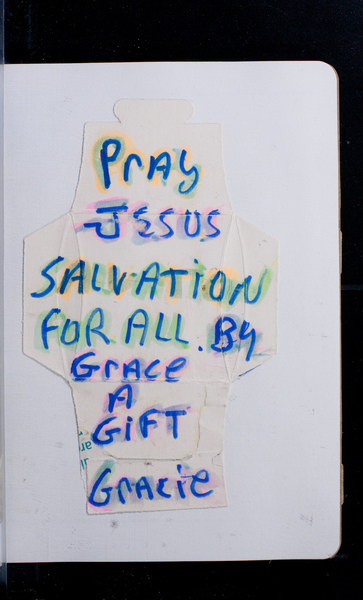 PRAY
JESUS
SALVATION
FOR ALL. By
GRACE
A
GIFT
GRACIE